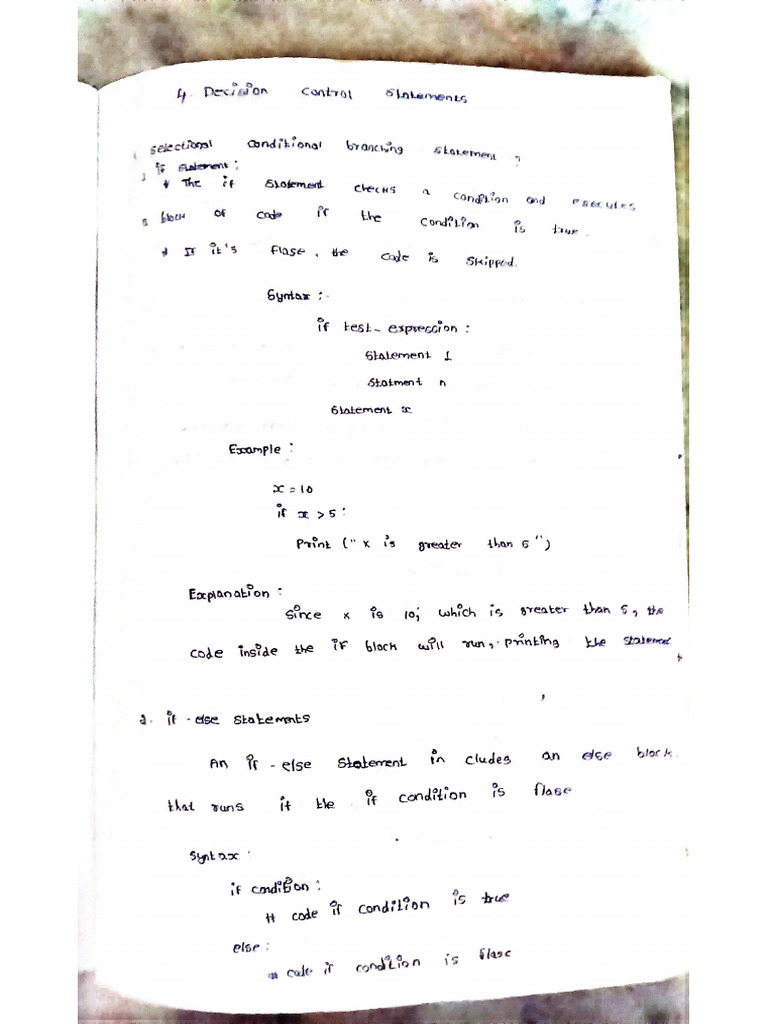 4. Decision control statements
selectional conditional branching statement :
1. if statement :
* The if statement checks a condition and executes
a block of code if the condition is true.
* If it's flase, the code is skipped.
Syntax :-
if test_expression :
Statement 1
Statment n
Statement x
Example :
x = 10
if x > 5 :
Print (" x is greater than 5 ")
Explanation :
Since x is 10; which is greater than 5, the
code inside the if block will run, printing the statement
2. if - else statements
An if - else statement in cludes an else block
that runs if the if condition is flase
Syntax :
if condition :
# code if condition is true
else :
# code if condition is flase